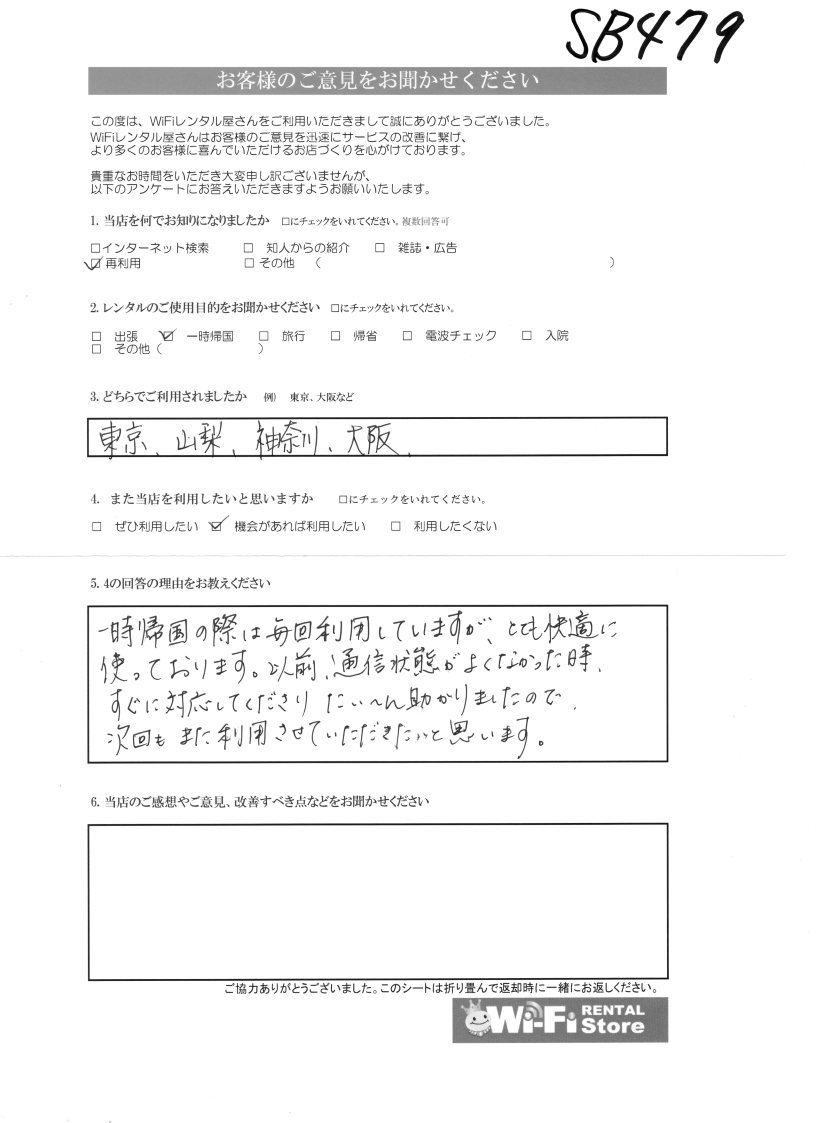 SB479
お客様のご意見をお聞かせください
この度は、WiFiレンタル屋さんをご利用いただきまして誠にありがとうございました。
WiFiレンタル屋さんはお客様のご意見を迅速にサービスの改善に繋げ、
より多くのお客様に喜んでいただけるお店づくりを心がけております。
貴重なお時間をいただき大変申し訳ございませんが、
以下のアンケートにお答えいただきますようお願いいたします。
1. 当店を何でお知りになりましたか □にチェックをいれてください。複数回答可
□インターネット検索 □ 知人からの紹介 □ 雑誌・広告
☑再利用 □ その他 ( )
2. レンタルのご使用目的をお聞かせください □にチェックをいれてください。
□ 出張 ☑ 一時帰国 □ 旅行 □ 帰省 □ 電波チェック □ 入院
□ その他 ( )
3. どちらでご利用されましたか 例) 東京、大阪など
東京、山梨、神奈川、大阪、
4. また当店を利用したいと思いますか □にチェックをいれてください。
□ ぜひ利用したい ☑ 機会があれば利用したい □ 利用したくない
5. 4の回答の理由をお教えください
一時帰国の際は毎回利用していますが、とても快適に
使っております。以前、通信状態がよくなかった時、
すぐに対応してくださり たいへん助かりましたので、
次回も また利用させていただきたいと思います。
6. 当店のご感想やご意見、改善すべき点などをお聞かせください
ご協力ありがとうございました。このシートは折り畳んで返却時に一緒にお返しください。
Wi-Fi RENTAL Store